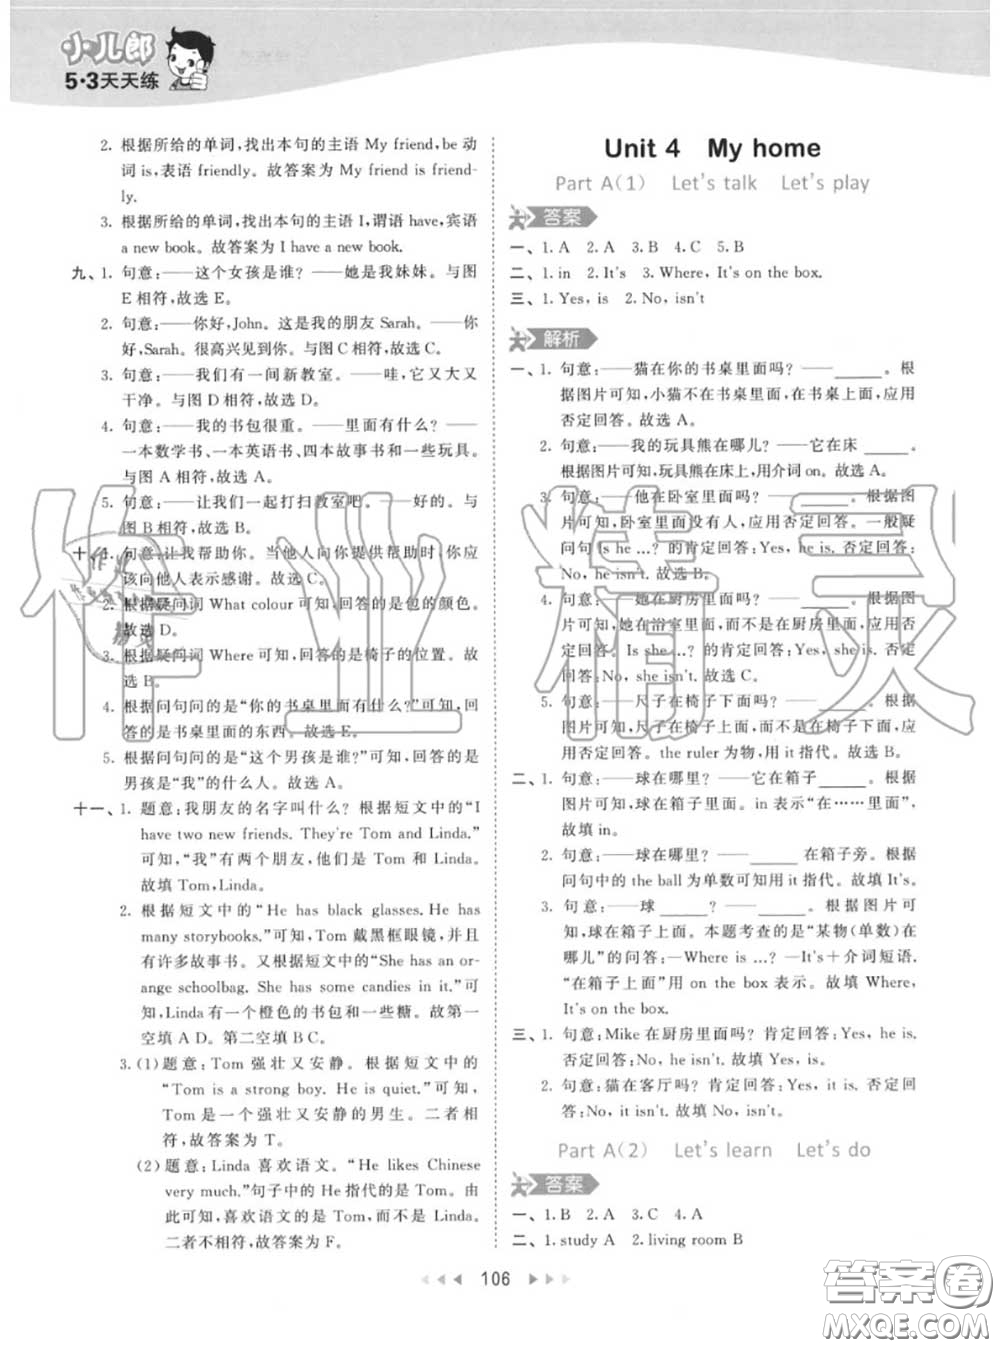 小儿郎
5·3天天练
2. 根据所给的单词,找出本句的主语 My friend,be 动
词 is,表语 friendly。故答案为 My friend is friend-
ly.
3. 根据所给的单词,找出本句的主语 I,谓语 have,宾语
a new book。故答案为 I have a new book.
九、1. 句意:——这个女孩是谁? ——她是我妹妹。与图
E 相符,故选 E。
2. 句意:——你好,John。这是我的朋友 Sarah。——你
好,Sarah。很高兴见到你。与图 C 相符,故选 C。
3. 句意:——我们有一间新教室。——哇,它又大又
干净。与图 D 相符,故选 D。
4. 句意:——我的书包很重。——里面有什么? ——
一本数学书、一本英语书、四本故事书和一些玩具。
与图 A 相符,故选 A。
5. 句意:——让我们一起打扫教室吧。——好的。与
图 B 相符,故选 B。
十、1. 句意:让我帮助你。当他人向你提供帮助时,你应
该向他人表示感谢。故选 C。
2. 根据疑问词 What colour 可知,回答的是包的颜色。
故选 D。
3. 根据疑问词 Where 可知,回答的是椅子的位置。故
选 B。
4. 根据问句问的是“你的书桌里面有什么?”可知,回
答的是书桌里面的东西。故选 E。
5. 根据问句问的是“这个男孩是谁?”可知,回答的是
男孩是“我”的什么人。故选 A。
十一、1. 题意:我朋友的名字叫什么? 根据短文中的“I
have two new friends. They're Tom and Linda.”
可知,“我”有两个朋友,他们是 Tom 和 Linda。
故填 Tom,Linda。
2. 根据短文中的“He has black glasses. He has
many storybooks.”可知,Tom 戴黑框眼镜,并且
有许多故事书。又根据短文中的“She has an or-
ange schoolbag. She has some candies in it.”可
知,Linda 有一个橙色的书包和一些糖。故第一
空填 A D。第二空填 B C。
3. (1) 题意:Tom 强壮又安静。根据短文中的
“Tom is a strong boy. He is quiet.”可知,
Tom 是一个强壮又安静的男生。二者相
符,故答案为 T。
(2) 题意:Linda 喜欢语文。“He likes Chinese
very much.”句子中的 He 指代的是 Tom。由
此可知,喜欢语文的是 Tom,而不是 Linda。
二者不相符,故答案为 F。
Unit 4 My home
Part A(1) Let's talk Let's play
答案
一、1. A 2. A 3. B 4. C 5. B
二、1. in 2. It's 3. Where, It's on the box.
三、1. Yes, is 2. No, isn't
解析
一、1. 句意:——猫在你的书桌里面吗? ——______。根
据图片可知,小猫不在书桌里面,在书桌上面,应用
否定回答。故选 A。
2. 句意:——我的玩具熊在哪儿? ——它在床______。
根据图片可知,玩具熊在床上,用介词 on。故选 A。
3. 句意:——他在卧室里面吗? ——______。根据图
片可知,卧室里面没有人,应用否定回答。一般疑
问句 Is he …? 的肯定回答:Yes, he is. 否定回答:
No, he isn't. 故选 B。
4. 句意:——她在厨房里面吗? ——______。根据图
片可知,她在浴室里面,而不是在厨房里面,应用否
定回答。Is she …? 的肯定回答:Yes, she is. 否定
回答:No, she isn't. 故选 C。
5. 句意:——尺子在椅子下面吗? ——______。根据
图片可知,尺子在椅子上面,而不是在椅子下面,应
用否定回答。the ruler 为物,用 it 指代。故选 B。
二、1. 句意:——球在哪里? ——它在箱子______。根据
图片可知,球在箱子里面。in 表示“在……里面”,
故填 in。
2. 句意:——球在哪里? ——______ 在箱子旁。根据
问句中的 the ball 为单数可知用 it 指代。故填 It's。
3. 句意:——球______? ——______。根据图片可
知,球在箱子上面。本题考查的是“某物(单数)在
哪儿”的问答:—Where is …? —It's+介词短语.
“在箱子上面”用 on the box 表示。故填 Where,
It's on the box.
三、1. 句意:Mike 在厨房里面吗? 肯定回答:Yes, he is.
否定回答:No, he isn't. 故填 Yes, is。
2. 句意:猫在客厅吗? 肯定回答:Yes, it is. 否定回
答:No, it isn't. 故填 No, isn't。
Part A(2) Let's learn Let's do
答案
一、1. B 2. A 3. C 4. A
二、1. study A 2. living room B
106
作业精灵
答案卷
MXQE.COM